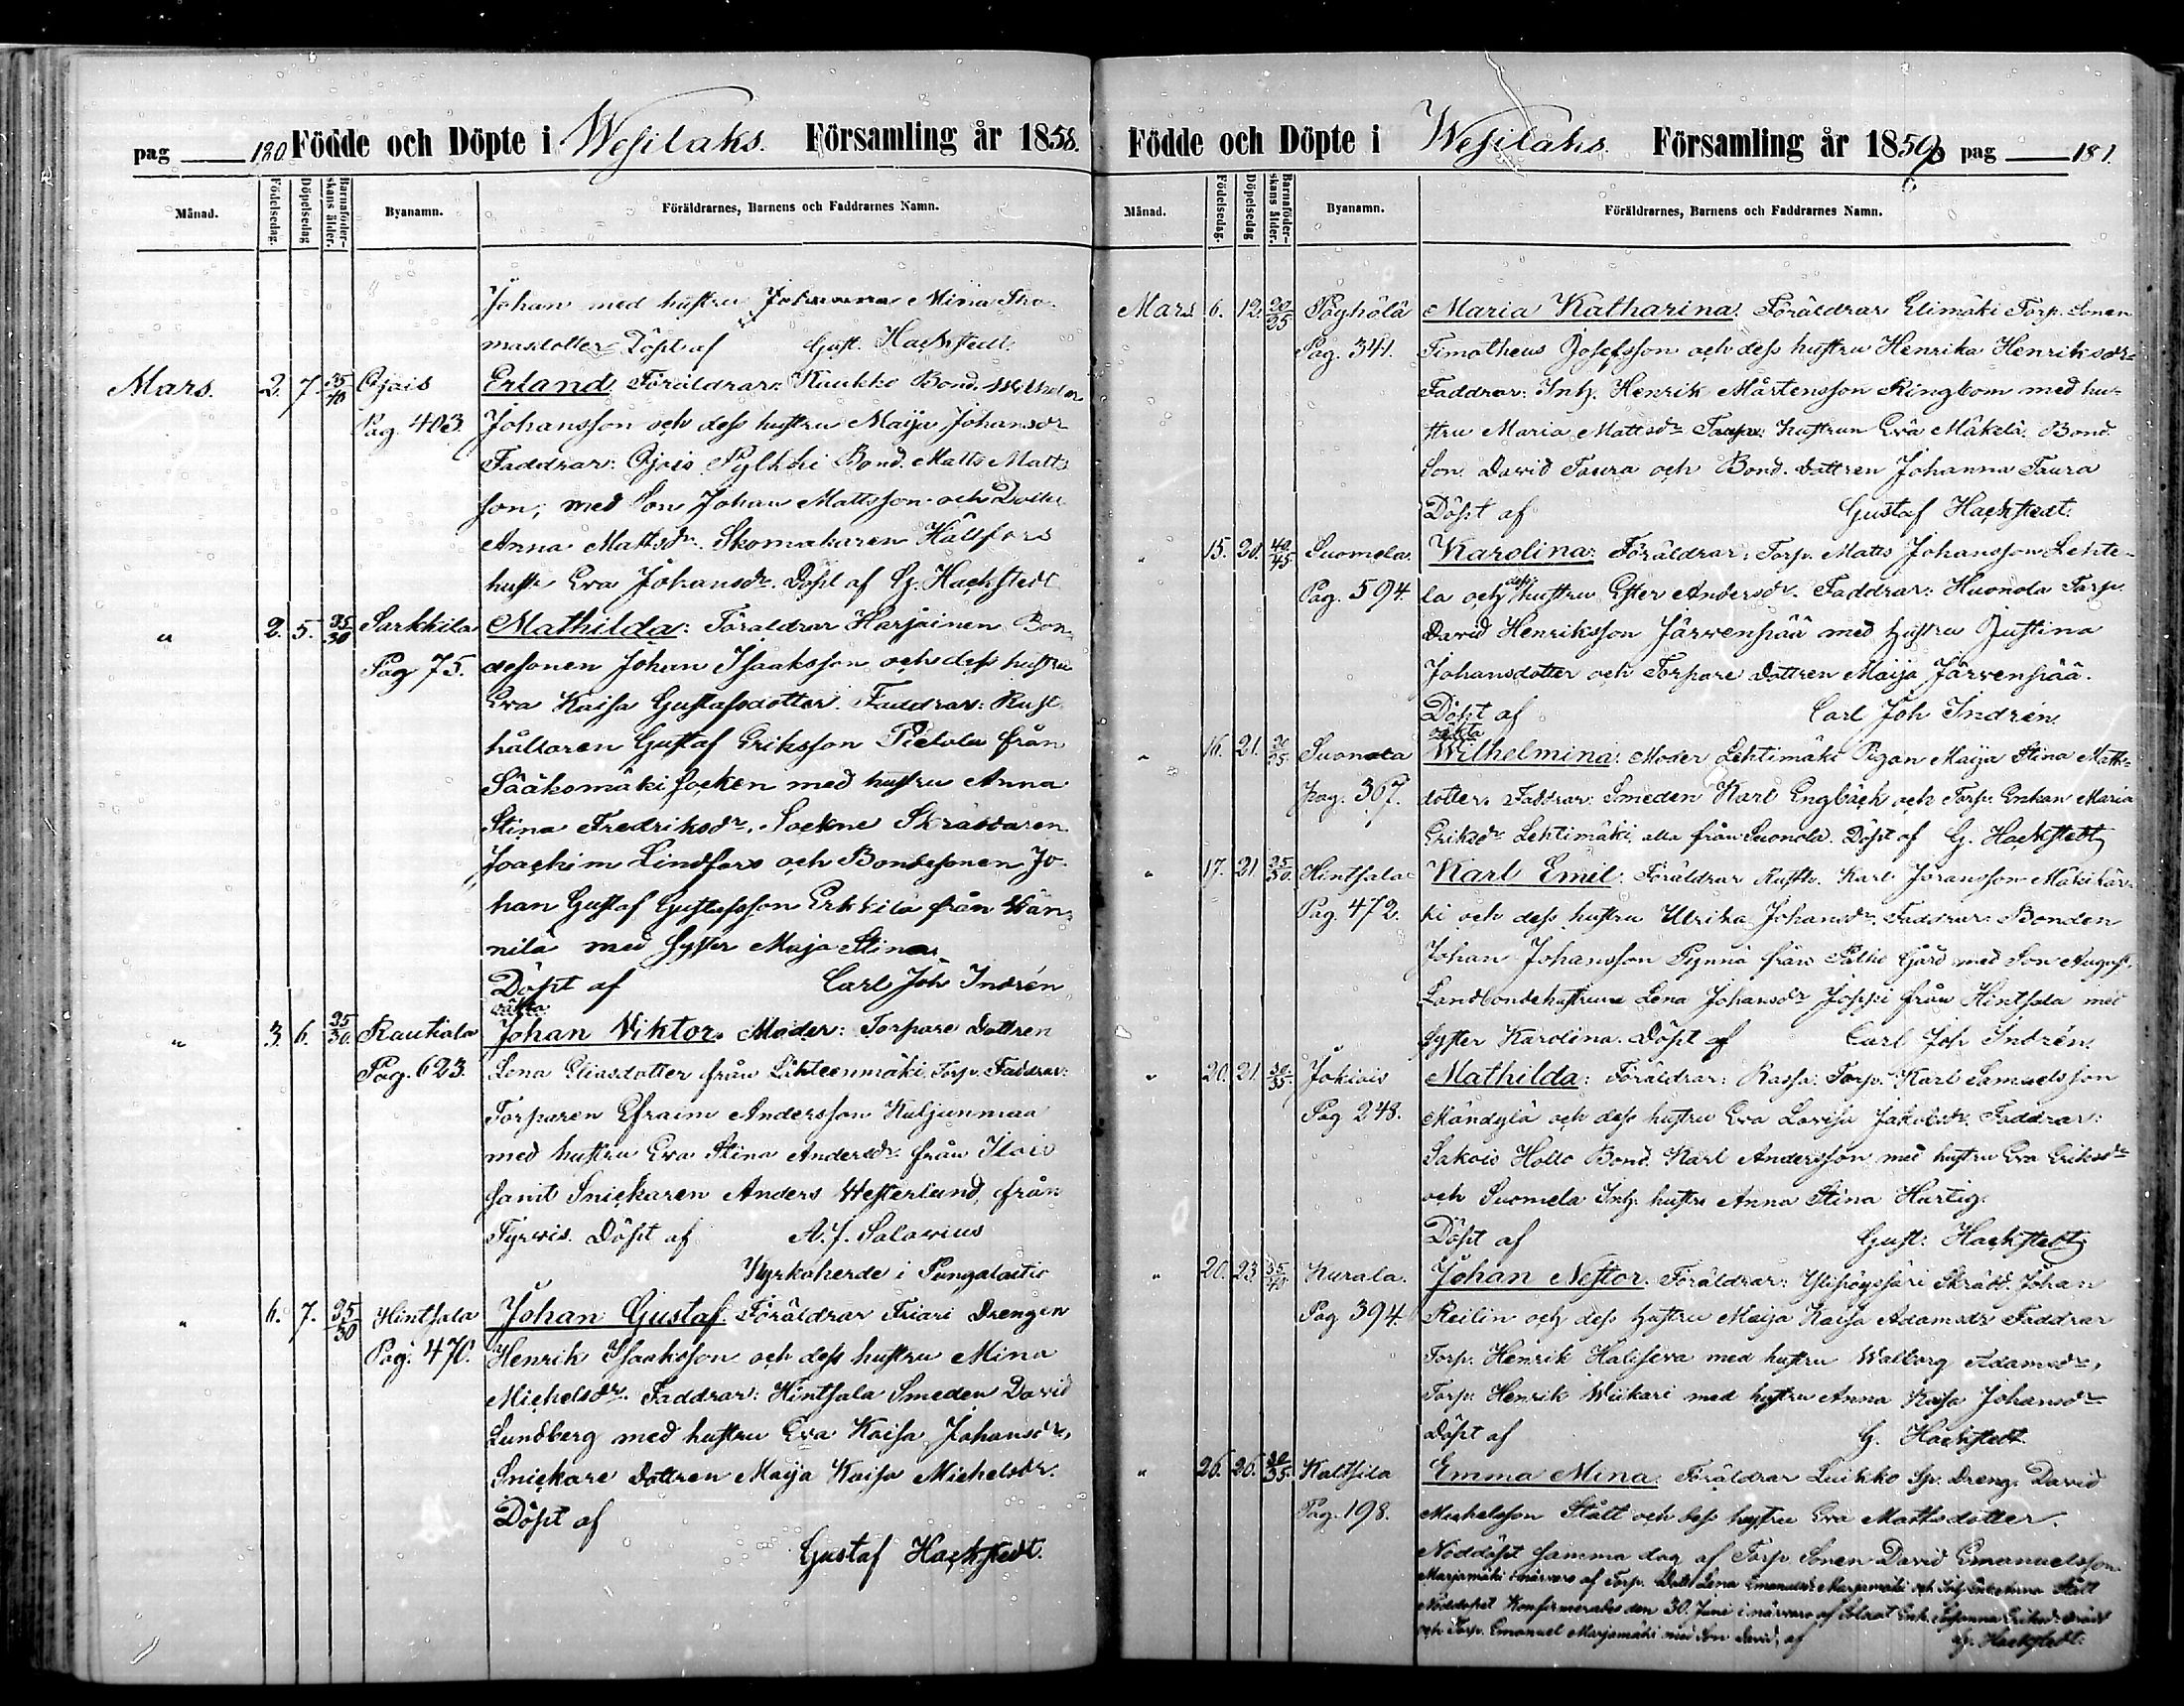 pag 180 Födde och Döpte i Wesilaks. Församling år 1858.
Månad. Födelsedag. Döpelsedag Barnaföderskans ålder. Byanamn. Föräldrarnes, Barnens och Faddrarnes Namn.
Johan med hustru Johanna Mina Tho-
masdotter Döpt af Gust. Hackstedt.
Mars. 2. 7. 35/40 Ojois Erland. Föräldrar: Kuukko Bond.
Pag. 403. Johansson och dess hustru Maija Johansdr
Faddrar: Ojois Pylkki Bond. Matts Matts
son, med Son Johan Mattsson och Dotter
Anna Mattsdr. Skomakaren Hällfors
hustr. Eva Johansdr. Döpt af G. Hackstedt
" 2. 5. 25/30 Sarkkila Mathilda: Föräldrar Harjainen Bon-
Pag 75. desonen Johan Isaaksson och dess hustru
Eva Kaisa Gustafsdotter. Faddrar: Rust
hållaren Gustaf Eriksson Pietola från
Sääksmäki Socken med hustru Anna
Stina Fredriksdr. Sockne Skräddaren
Joachim Lindfors och Bondesonen Jo-
han Gustaf Gustafsson Erkkilä från Kän-
nilä med Syster Maja Stina.
Döpt af Carl Joh Indrén
oäkta
" 3. 6. 25/30. Rautiala Johan Viktor. Moder: Torpare Dottren
Pag. 623. Lena Eliasdotter från Lähteenmäki Torp. Faddrar:
Torparen Efraim Andersson Kuljunmaa
med hustru Eva Stina Andersdr från Ilois
samt Snickaren Anders Westerlund från
Tyrvis. Döpt af A. J. Salovius
Kyrkoherde i Pungalaitio
" 6. 7. 35/30 Hintsala Johan Gustaf. Föräldrar Friari Drengen
Pag. 470. Henrik Isaaksson och dess hustru Mina
Michelsdr. Faddrar: Hintsala Smeden David
Lundberg med hustru Eva Kaisa Johansdr,
Snickare Dottren Maija Kaisa Michelsdr.
Döpt af
Gustaf Hackstedt.
Födde och Döpte i Wesilaks. Församling år 1858 pag 181.
Månad. Födelsedag. Döpelsedag Barnaföderskans ålder. Byanamn. Föräldrarnes, Barnens och Faddrarnes Namn.
Mars 6. 12. 20/25 Pöyhölä Maria Katharina. Föräldrar Elimäki Torp. Sonen
Pag. 341. Timotheus Josefsson och dess hustru Henrika Henriksdr
Faddrar: Inh. Henrik Mårtensson Ringbom med hu-
stru Maria Mattsdr hustrun Eva Mäkelä. Bond.
Son. David Taura och Bond. Dottren Johanna Taura
Döpt af Gustaf Hackstedt.
" 15. 20. 40/45 Suomela. Karolina: Föräldrar: Torp. Matts Johansson Lehte-
Pag. 594. la och dess hustru Ester Andersdr. Faddrar: Huonola Torp.
David Henriksson Järvenpää med hustru Justina
Johansdotter och Torpare dottren Maija Järvenpää.
Döpt af Carl Joh Indrén.
oäkta
" 16. 21. Suonola Wilhelmina. Moder Lehtimäki Pigan Maija Stina Matts-
Pag. 367. dotter. Faddrar: Smeden Karl Engbäck och Torp. Enkan Maria
Eriksdr Lehtimäki, alla från Suonola. Döpt af G. Hackstedt
" 17. 21 Hintsala Karl Emil. Föräldrar Rusth. Karl Johansson Mäkikär-
Pag. 472. ki och dess hustru Ulrika Johansdr. Faddrar: Bonden
Johan Johansson från Gård med Son August.
Landbondehustrun Lena Johansdr Joppi från Hintsala med
Syster Karolina. Döpt af Carl Joh Indrén.
" 20. 21. 30/35. Jokiois Mathilda: Föräldrar: Torp. Karl Samuelsson
Pag 248. Mändylä och dess hustru Eva Lovisa Jakobsdr. Faddrar:
Sakois Hollo Bond. Karl Andersson med hustru Eva Eriksdr
och Suomela Inh. hustru Anna Stina Hartig.
Döpt af Gust. Hackstedt
" 20. 23. 35/40 Kurala. Johan Nestor. Föräldrar: Skrädd. Johan
Pag 394. Reilin och dess hustru Maija Kaisa Adamsdr Faddrar
Torp. Henrik med hustru Walborg Adamsdr,
Torp. Henrik Wiikari med hustru Anna Kaisa Johansdr
Döpt af G. Hackstedt.
" 26. 26. 30/35 Kaltsila Emma Mina. Föräldrar Luikko Sp. Dreng. David
Pag. 198. Michelsson Stålt och dess hustru Eva Mattsdotter.
Nöddöpt samma dag af Torp. Sonen David Emanuelsson
Marjamäki i närvaro af Torp. Dottr. Lena Emanuelsdr Marjamäki och Stålt
Nöddopet Konfirmerades den 30. Juni i närvaro af Soldat Enk. Johanna Eriksdr
och Torp. Emanuel Marjamäki med Son David, af G. Hackstedt.